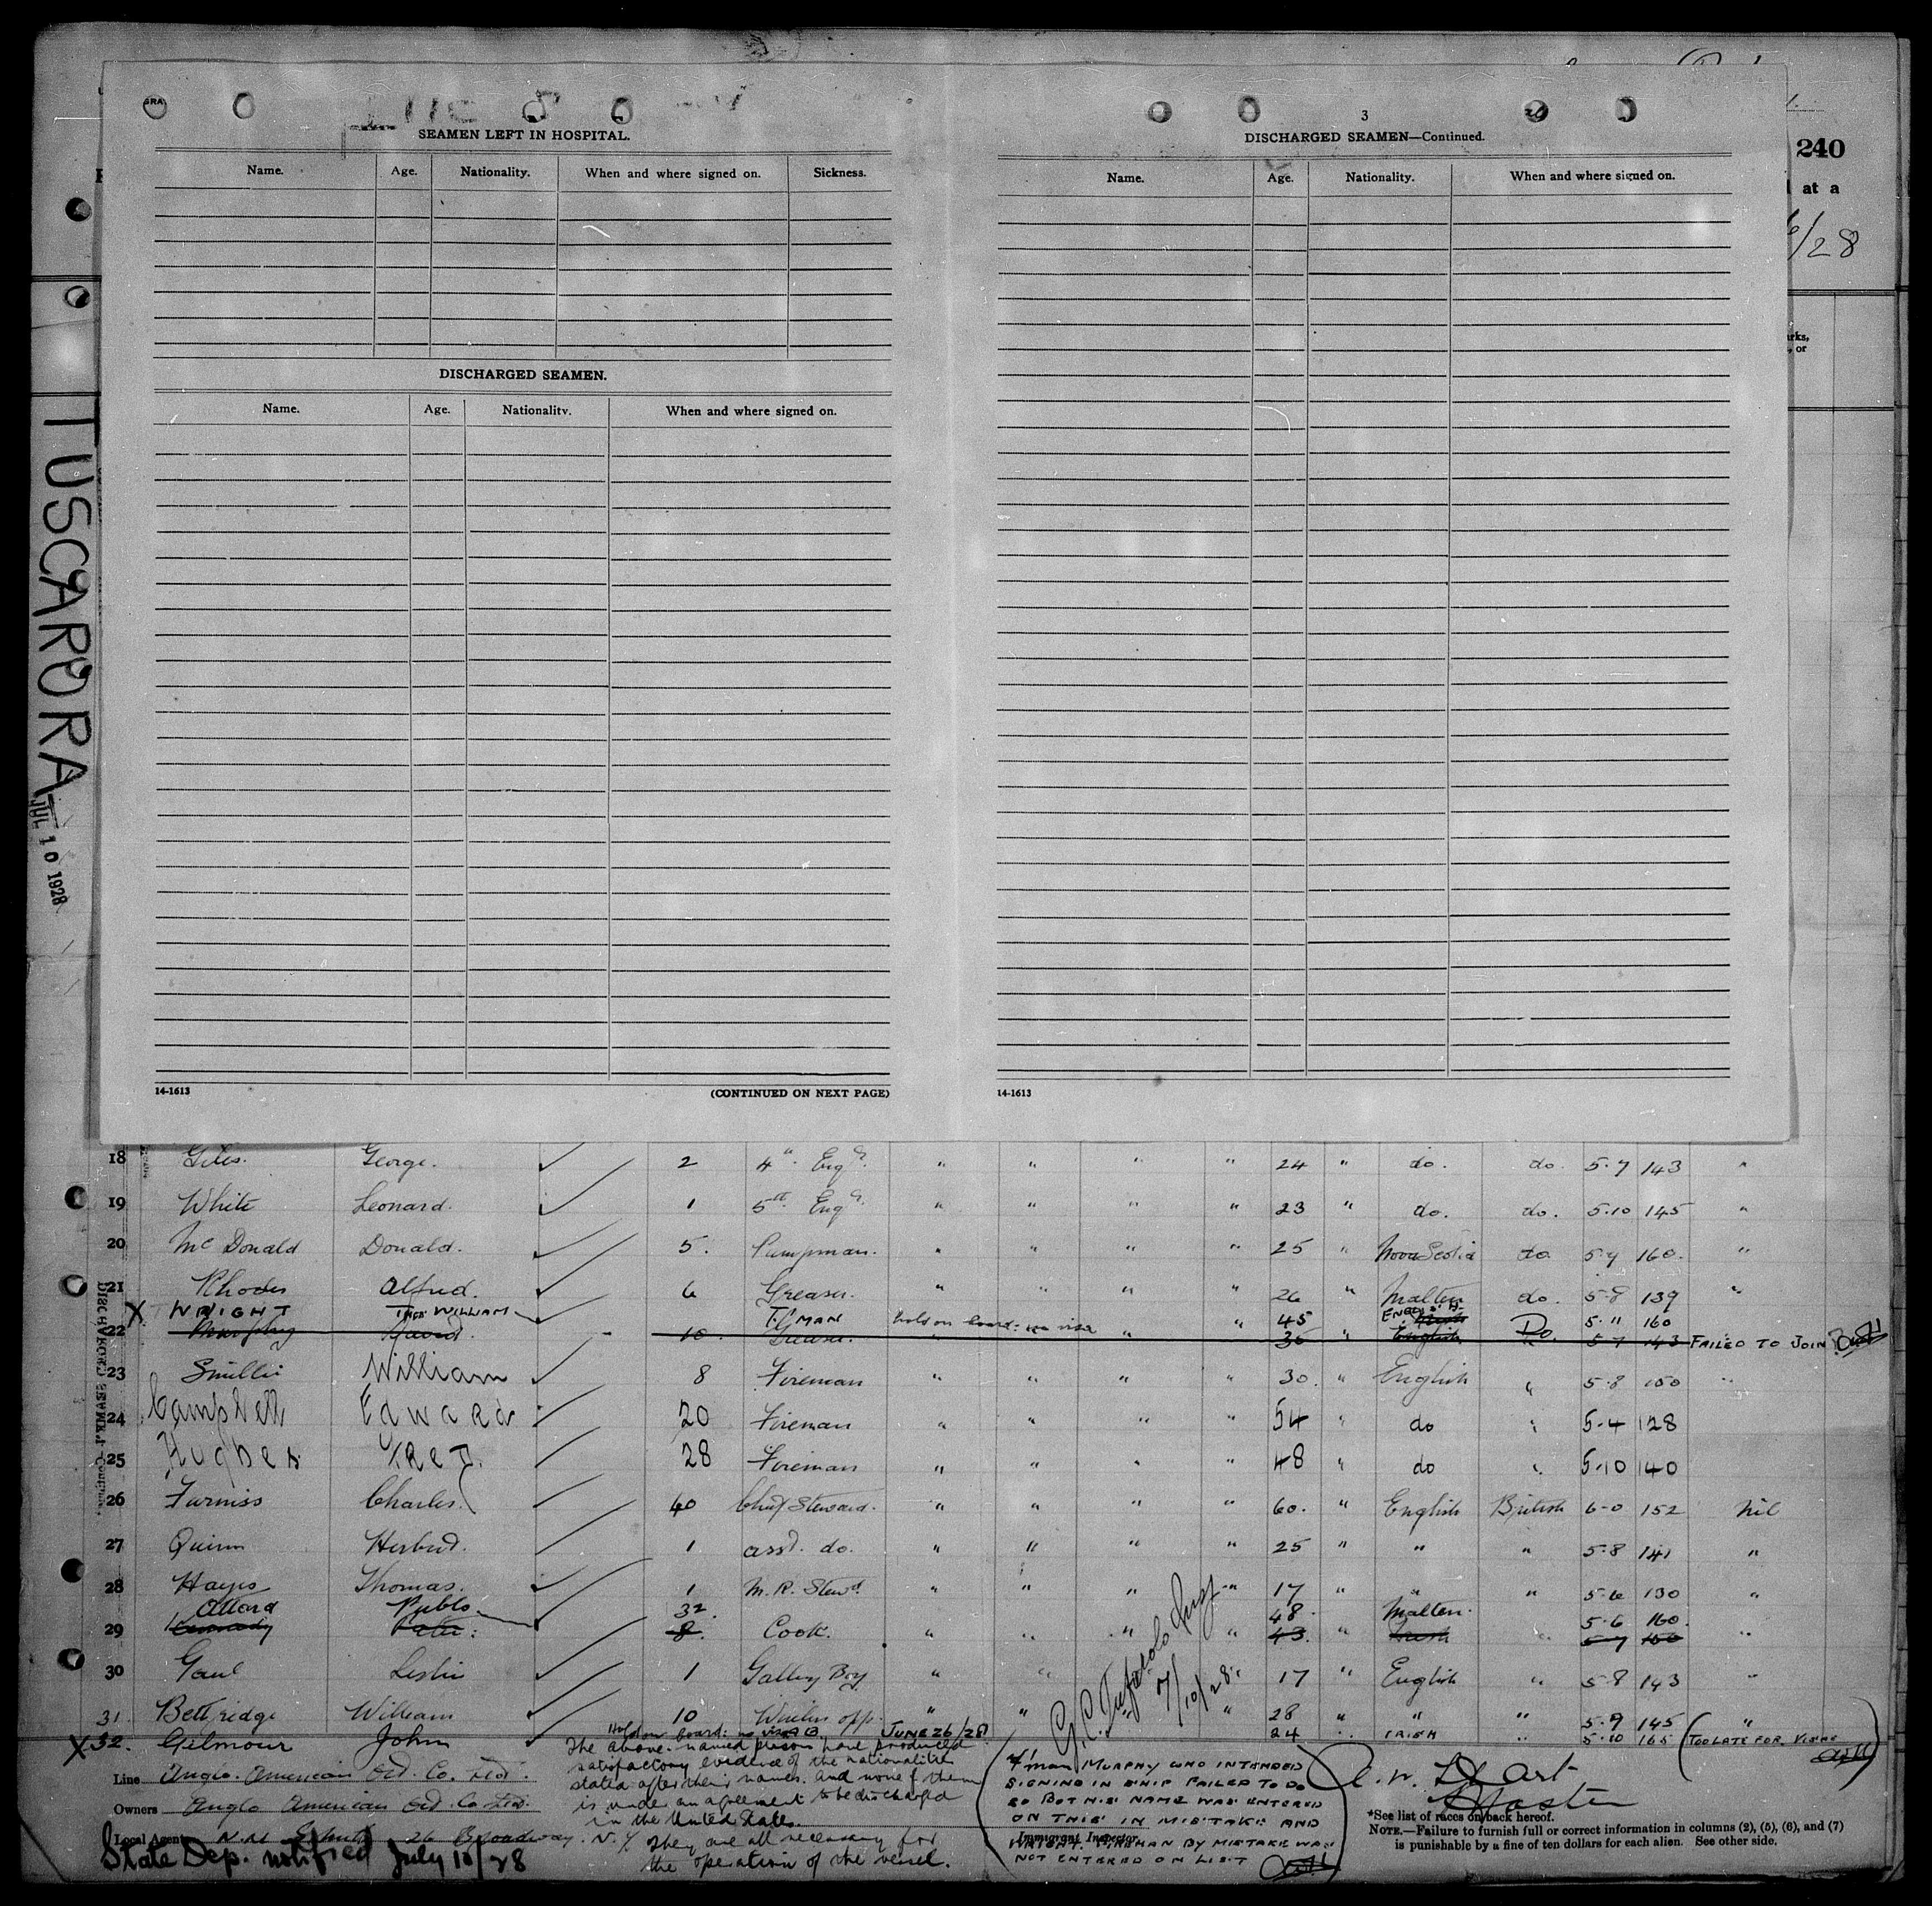 TUSCARORA
JUL 10 1928
240
at a
/28
SEAMEN LEFT IN HOSPITAL.
Name. Age. Nationality. When and where signed on. Sickness.
DISCHARGED SEAMEN.
Name. Age. Nationality. When and where signed on.
14-1613 (CONTINUED ON NEXT PAGE)
3
DISCHARGED SEAMEN—Continued.
Name. Age. Nationality. When and where signed on.
14-1613
18 Giles. George. 2 4th Engr. " " " " 24 " do. do. 5.7 143 "
19 White Leonard. 1 5th Engr. " " " " 23 " do. do. 5.10 145 "
20 McDonald Donald. 5. Pumpman. " " " " 25 " Nova Scotia do 5.9 160. "
21 Rhodes Alfred. 6 Greaser. " " " " 26 " Malten do. 5.8 139 "
X WRIGHT WILLIAM F'MAN hold on board: no visa " 45 ENGLISH 5.11 160
22 Murphy David. 10. Greaser. " " 36 " English Do. 5.7 143 FAILED TO JOIN
23 Smillie William 8 Fireman " " " " 30. " English " 5.8 150 "
24 Campbell Edward 20 Fireman " " " " 54 " do " 5-4 128
25 Hughes Fred. 28 Fireman " " " " 48 " do " 5.10 140
26 Furniss Charles. 40 Chief Steward. " " " " 60. " English British 6-0 152 nil
27 Quinn Herbert. 1 asst. do. " " " " 25 " " " 5.8 141 "
28 Hayes Thomas. 1 M.R. Stewd. " " " " 17 " " " 5.6 130 "
Attard Publo 32. 48. Malten. 5.6 160.
29 Kennedy Peter. 8. Cook. " " " " 43. " Irish " 5-7 160 "
30 Gaul Leslie 1 Galley Boy " " " 17 " English " 5.8 143 "
31. Bettridge William 10 Wireless opp. " " " " 28 " " " 5.9 145 "
X 32. Gilmour John Hold on board: no visa JUNE 26/28 24 IRISH " 5.10 165 (TOO LATE FOR VISA)
7/10/28
The above named persons have produced
satisfactory evidence of the nationalities
stated after their names. And none of them
is under an agreement to be discharged
in the United States.
They are all necessary for
the operation of the vessel.
Line Anglo. American Oil. Co. Ltd.
Owners Anglo American Oil Co Ltd.
Local Agent 26 Broadway. N.Y.
State Dep. notified July 10/28
F'man MURPHY WHO INTENDED
SIGNING IN SHIP FAILED TO DO
SO BUT HIS NAME WAS ENTERED
ON THIS IN MISTAKE AND
WRIGHT FIREMAN BY MISTAKE WAS
NOT ENTERED ON LIST
Immigrant Inspector.
Master
*See list of races on back hereof.
NOTE.—Failure to furnish full or correct information in columns (2), (5), (6), and (7)
is punishable by a fine of ten dollars for each alien. See other side.